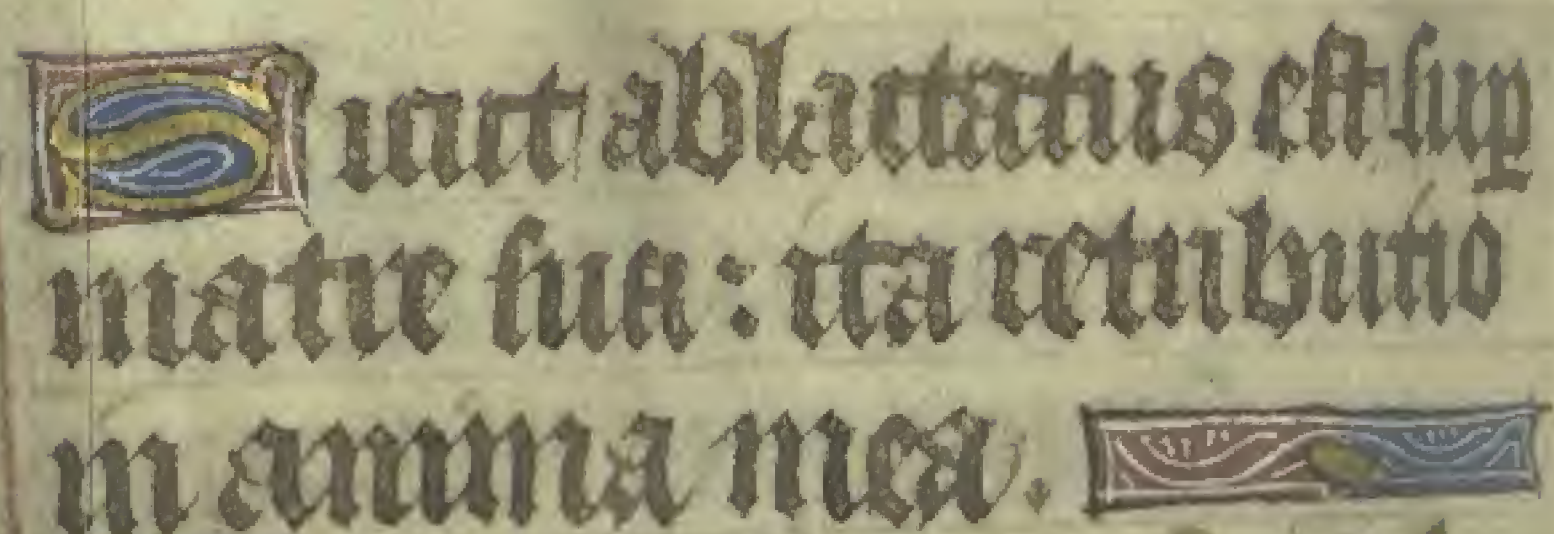 Sicut ablactatus est sup
matre sua : ita retributio
in anima mea.